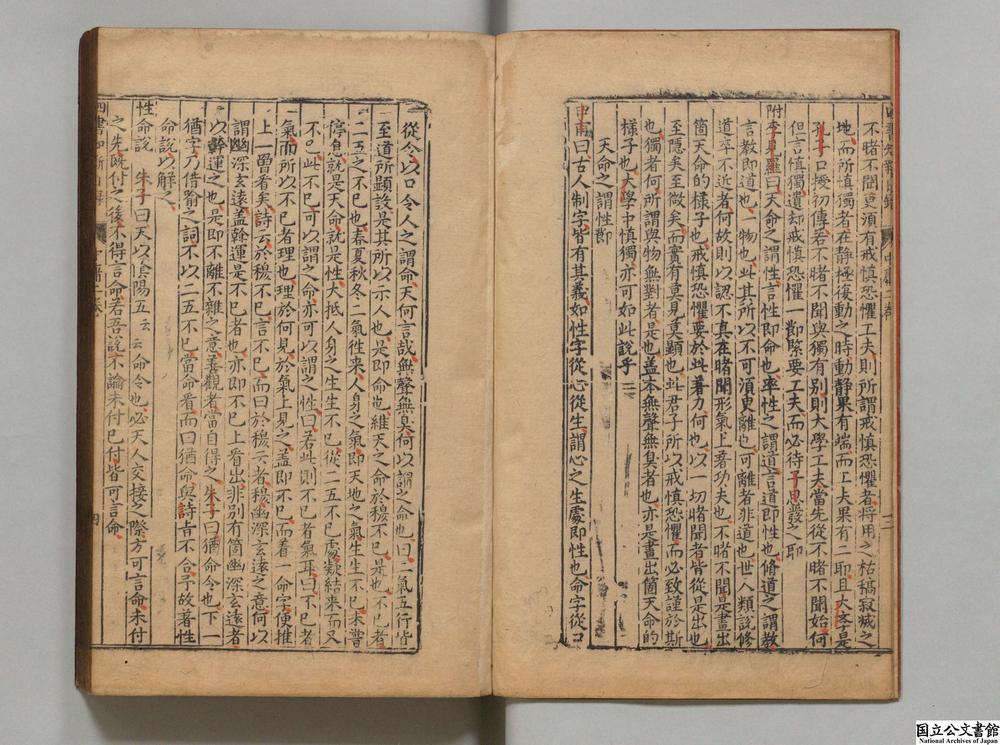 不睹不聞更須有戒慎恐懼工夫則所謂戒慎恐懼者將用之枯稿寂滅之
地而所慎獨者在静極復動之時動静果有端而工夫果有二耶且大學是
孔子口授初傳若不睹不聞與獨有别則大學工夫當先從不睹不聞始何
但言慎獨遺却戒慎恐懼一節緊要工夫而必待子思發之耶
附李見羅曰天命之謂性言性即命也率性之謂道言道即性也脩道之謂教
言教即道也一物也此其所以不可須臾離也可離者非道也世人類說修
道卒不近者何故則以認不真在睹聞形氣上著功夫也不睹不聞是畫出
箇天命的樣子也戒慎恐懼要於此著力何也以一切睹聞者皆從是出也
至隱矣至微矣而實有莫見莫顯也此君子所以戒慎恐懼而必致謹於斯
也獨者何所謂與物無對者是也蓋本無聲無臭者也亦是畫出箇天命的
樣子也大學中慎獨亦可如此說乎
天命之謂性節
甲南曰古人制字皆有其義如性字從心從生謂心之生處即性也命字從口
從令以口令人之謂命天何言哉無聲無臭何以謂之命也曰二氣五行皆
至道所顯設是其所以示人也是即命也維天之命於穆不已是也不已者
二五之不已也春夏秋冬二氣徃來人身之氣即天地之氣生生不已未嘗
停息就是天命就是性大抵人身之生生不已從二五不已處凝結來而又
不已此不已可以謂之命亦可以謂之性曰若此則不已者氣耳曰不已者
氣而所以不已者理也理於何見於氣上見之蓋即不已而看一命字便推
上一層看矣詩云於穆不已言不已而曰於穆云者穆幽深玄遠之意何以
謂幽深玄遠蓋斡運是不已者也亦即不已上看出非别有箇幽深玄遠者
以斡運之也是即不離不雜之意善觀者當自得之朱子曰猶命令也下一
猶字乃借喻之詞不以二五不已當命看而曰猶命與詩旨不合予故著性
命說以解之
性命說 朱子曰天以陰陽五云云命令也必天人交接之際方可言命未付
之先既付之後不得言命若吾說不論未付已付皆可言命
四
国立公文書館
National Archives of Japan